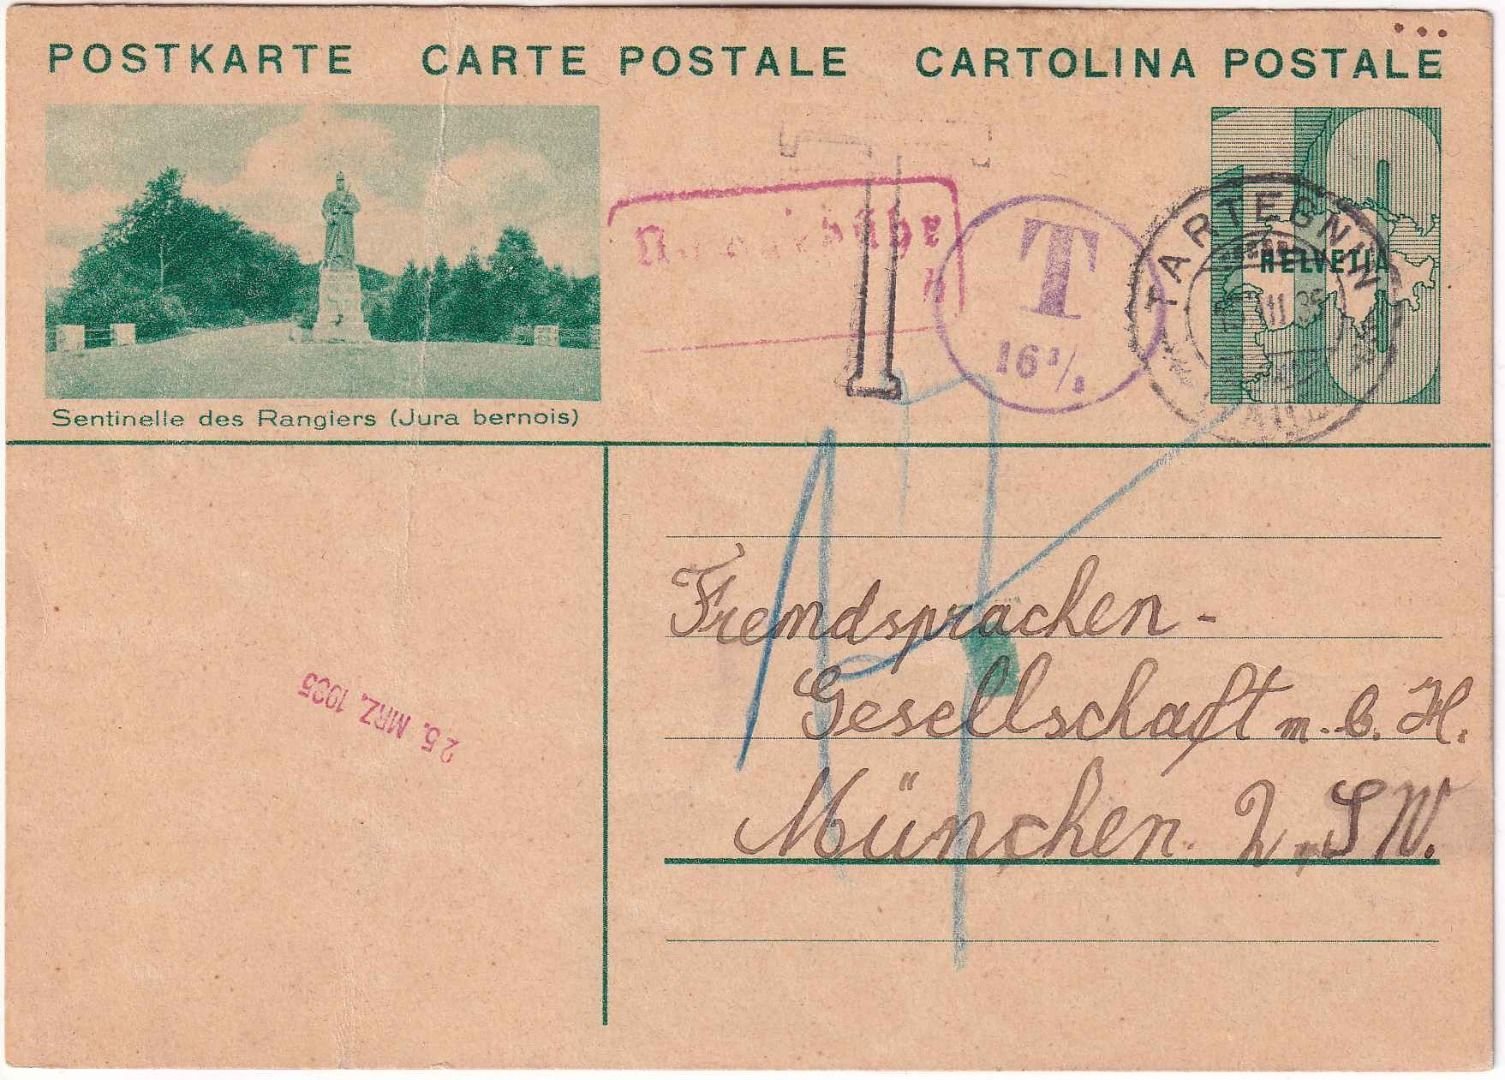 POSTKARTE CARTE POSTALE CARTOLINA POSTALE
HELVETIA
10
TARTEGNIN
T
T
16 2/3
Sentinelle des Rangiers (Jura bernois)
25. MRZ. 1935
Fremdsprachen-
Gesellschaft m. b. H.
München. 2, SW.